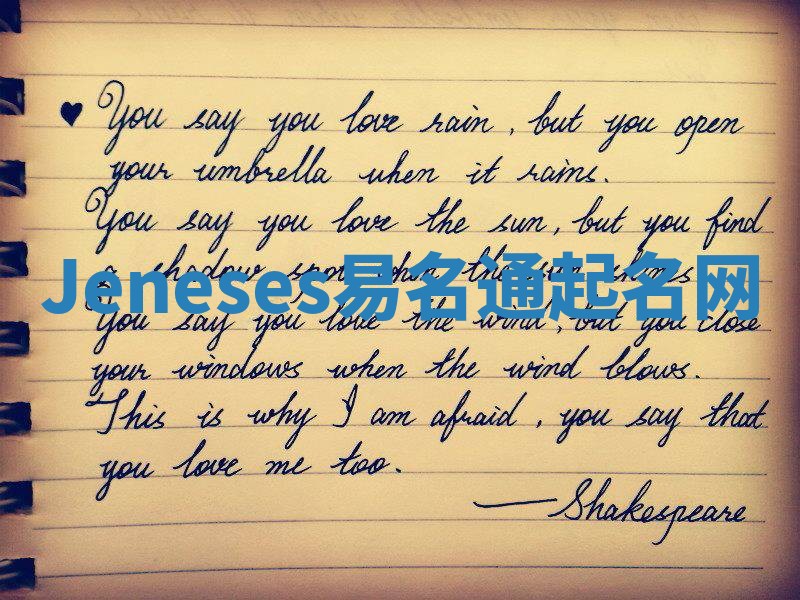 ♥ You say you love rain, but you open
your umbrella when it rains.
You say you love the sun, but you find
a shadow spot when the sun shines
Jeneses易名通起名网
You say you love the wind, but you close
your windows when the wind blows.
This is why I am afraid, you say that
you love me too.
—Shakespeare